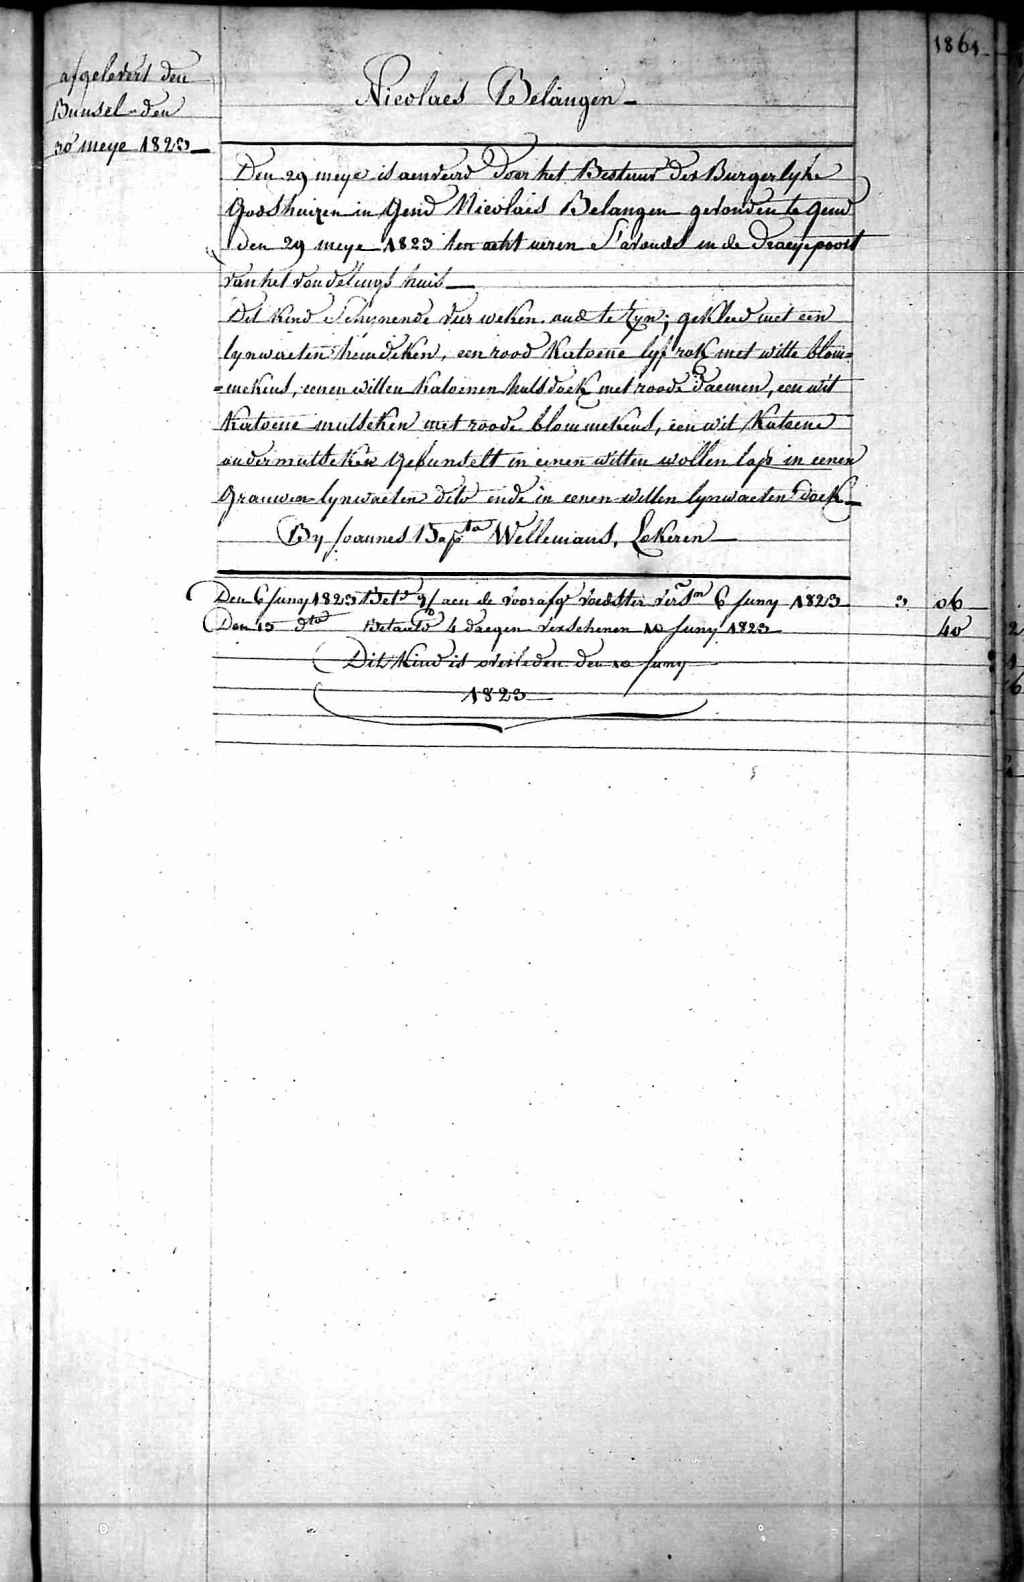 1861
afgelevert den
Bunsel den
30 meye 1823
Nicolaes Belangen
Den 29 meye is aenveird door het Bestuur der Burgerlyke
Godshuizen in Gend Nicolaes Belangen gevonden te Gend
den 29 meye 1823 ten acht uren s'avonds in de Draeypoort
van het vondelings huis
Dit kind schynende vier weken oud te zyn; gekleed met een
lynwaeten hemdeken, een rood katoene lyfrok met witte blom=
=mekens, eenen witten katoenen halsdoek met roode daemen, een wit
katoene mutseken met roode blommekens, een wit katoene
ondermutseken gebunselt in eenen witten wollen lap in eenen
grauwen lynwaeten dito ende in eenen witten lynwaeten doek
By Joannes Bapta Wellemans, Lokeren
Den 6 Juny 1823 Bet. aen de voorafg voedster 6 Juny 1823 3 06
Den 15 dto Betaeld 4 daegen verschenen 10 Juny 1823 40
Dit Kind is overleden den 10 Juny
1823